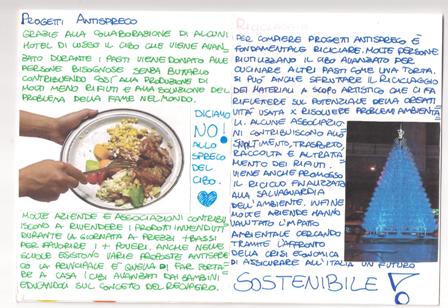 PROGETTI ANTISPRECO
GRAZIE ALLA COLLABORAZIONE DI ALCUNI
HOTEL DI LUSSO IL CIBO CHE VIENE AVAN-
ZATO DURANTE I PASTI VIENE DONATO ALLE
PERSONE BISOGNOSE SENZA BUTTARLO
CONTRIBUENDO COSÌ ALLA PRODUZIONE DI
MOLTI MENO RIFIUTI E ALLA SOLUZIONE DEL
PROBLEMA DELLA FAME NEL MONDO.
DICIAMO
NO!
ALLO
SPRECO
DEL
CIBO.
MOLTE AZIENDE E ASSOCIAZIONI CONTRIBUI-
SCONO A RIVENDERE I PRODOTTI INVENDUTI
DURANTE LA GIORNATA A PREZZI + BASSI
PER FAVORIRE I + POVERI. ANCHE NELLE
SCUOLE ESISTONO VARIE PROPOSTE ANTISPRE-
CO LA PRINCIPALE È QUELLA DI FAR PORTA-
RE A CASA I CIBI AVANZATI DAI BAMBINI
EDUCANDOLI SUL CONCETTO DEL RECUPERO.
RICICLAGGIO
PER COMPIERE PROGETTI ANTISPRECO È
FONDAMENTALE RICICLARE. MOLTE PERSONE
RIUTILIZZANO IL CIBO AVANZATO PER
CUCINARE ALTRI PASTI COME UNA TORTA.
SI PUÒ ANCHE SFRUTTARE IL RICICLAGGIO
DEI MATERIALI A SCOPO ARTISTICO CHE CI FA
RIFLETTERE SUL POTENZIALE DELLA CREATI-
VITÀ USATA X RISOLVERE PROBLEMI AMBIENTA-
LI. ALCUNE ASSOCIAZIO-
NI CONTRIBUISCONO ALLO
SMALTIMENTO, TRASPORTO,
RACCOLTA E AL TRATTA-
MENTO DEI RIFIUTI.
VIENE ANCHE PROMOSSO
IL RICICLO FINALIZZATO
ALLA SALVAGUARDIA
DELL'AMBIENTE. INFINE
MOLTE AZIENDE HANNO
VALUTATO L'IMPATTO
AMBIENTALE CERCANDO
TRAMITE L'AFFRONTO
DELLA CRISI ECONOMICA
DI ASSICURARE ALL'ITALIA UN FUTURO
SOSTENIBILE!